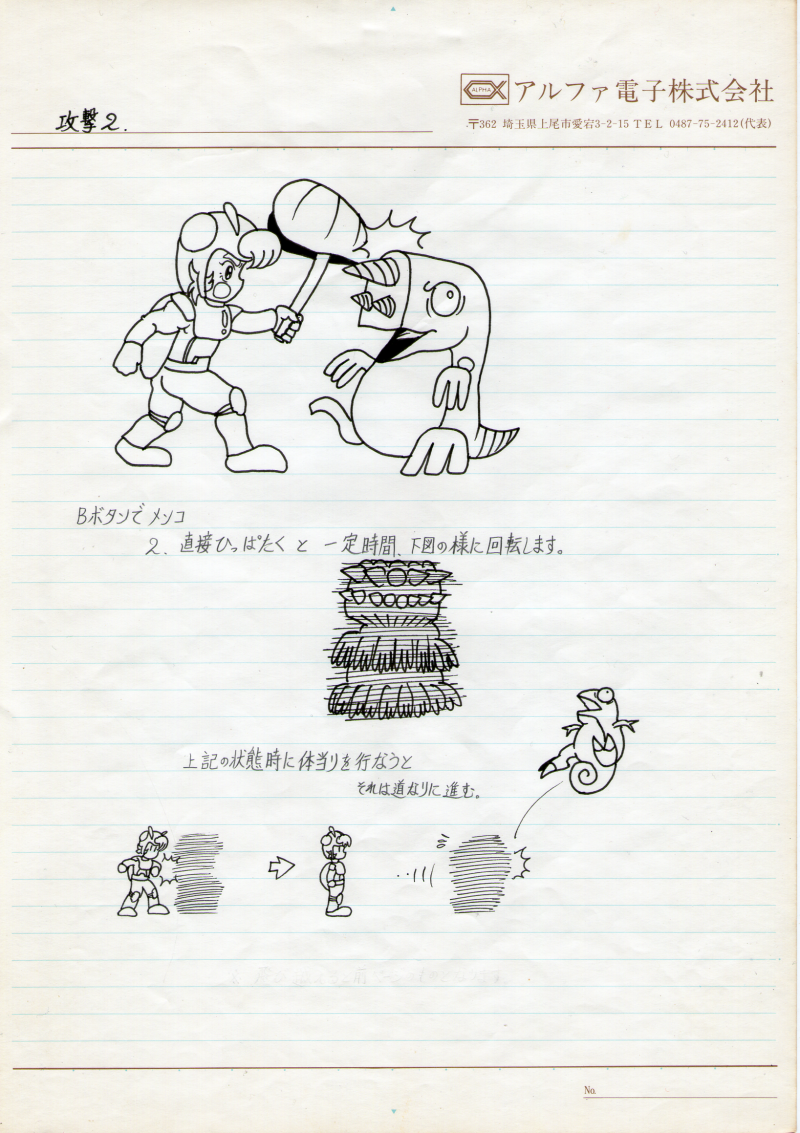 ALPHA アルファ電子株式会社
攻撃2.
〒362 埼玉県上尾市愛宕3-2-15 TEL 0487-75-2412(代表)
Bボタンでメンコ
2. 直接ひっぱたくと一定時間、下図の様に回転します。
上記の状態時に体当りを行なうと
それは道なりに進む。
No.